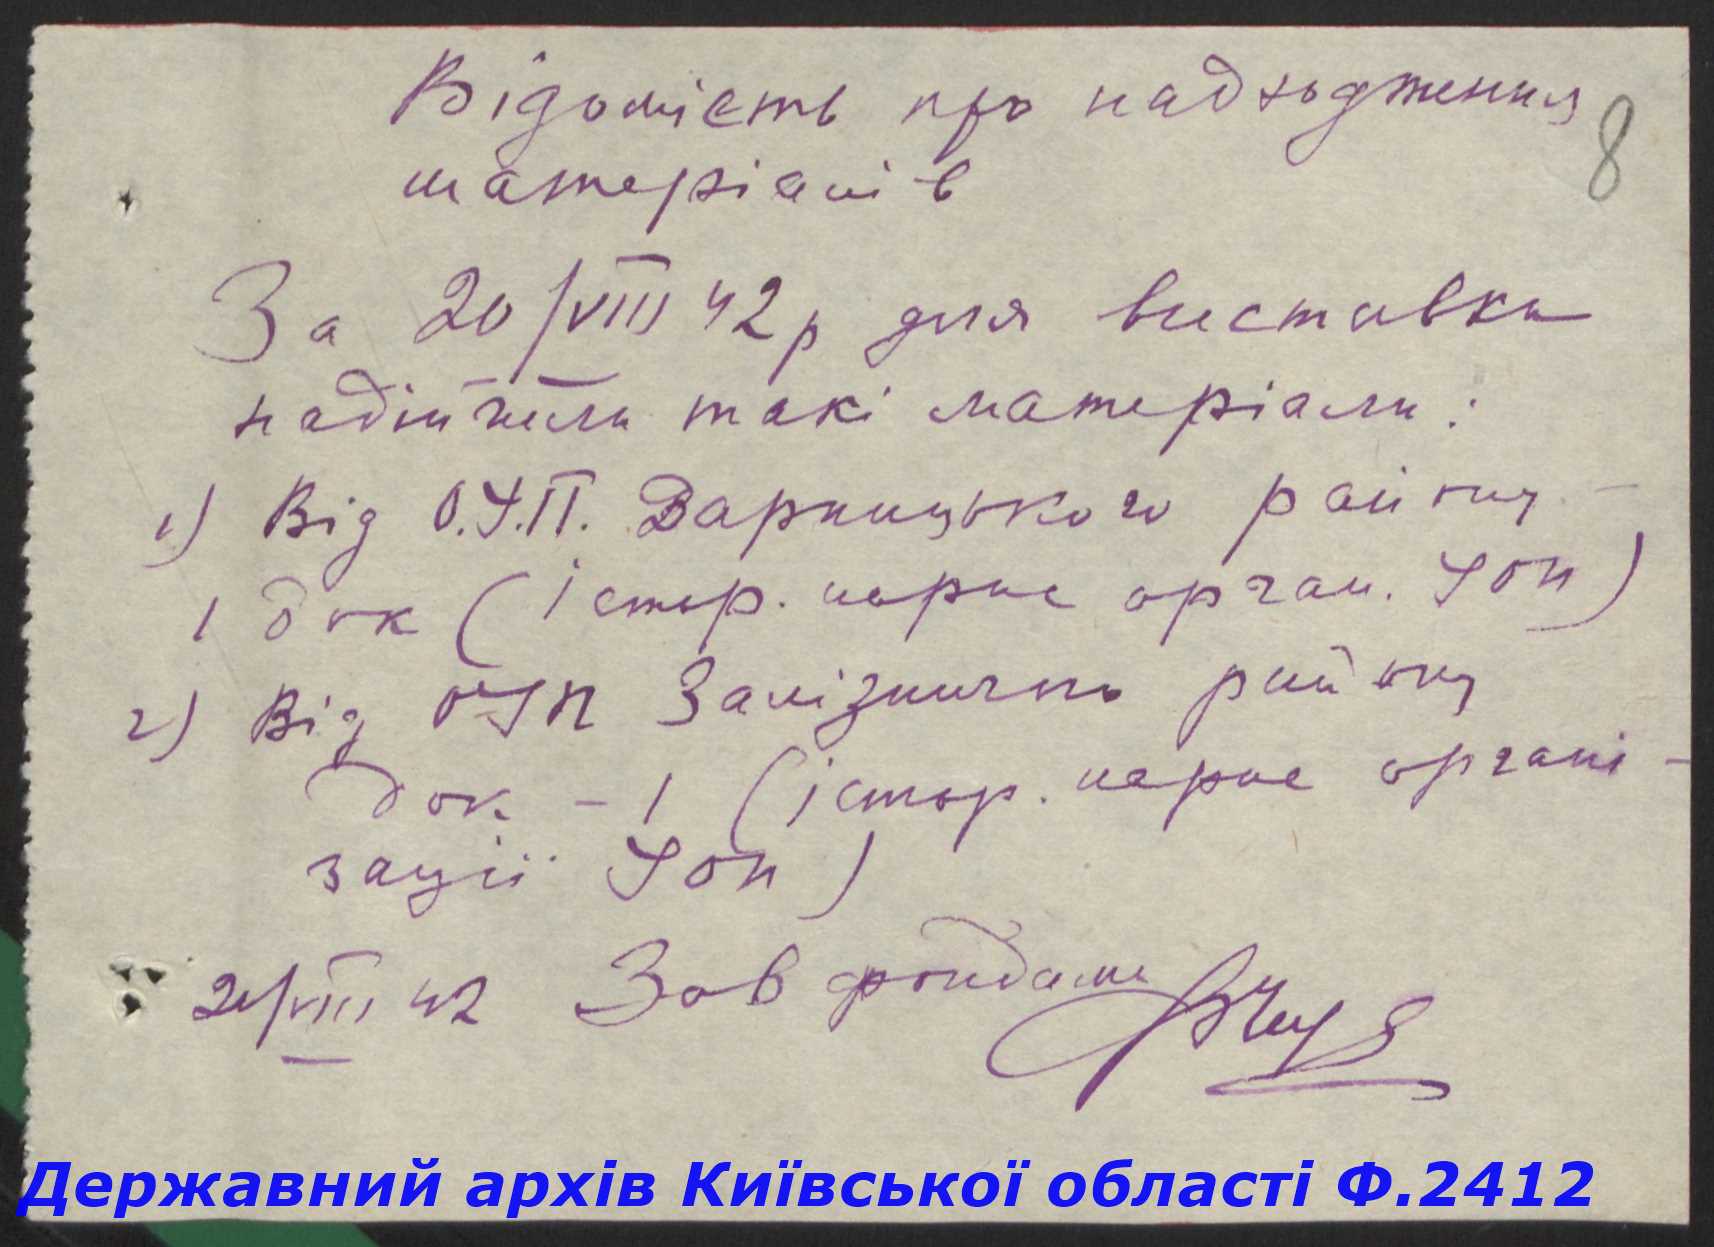 Відомість про надходження
8
матеріалів
За 20/VIII 42 р для виставки
надійшли такі матеріали:
1) Від О.У.П. Дарницького району –
1 док (істор. нарис орган. УОП)
2) Від ОУП Залізнично району
док – 1 (істор. нарис органі-
зації УОП)
21/VIII 42 Зав фондами
Державний архів Київської області Ф.2412